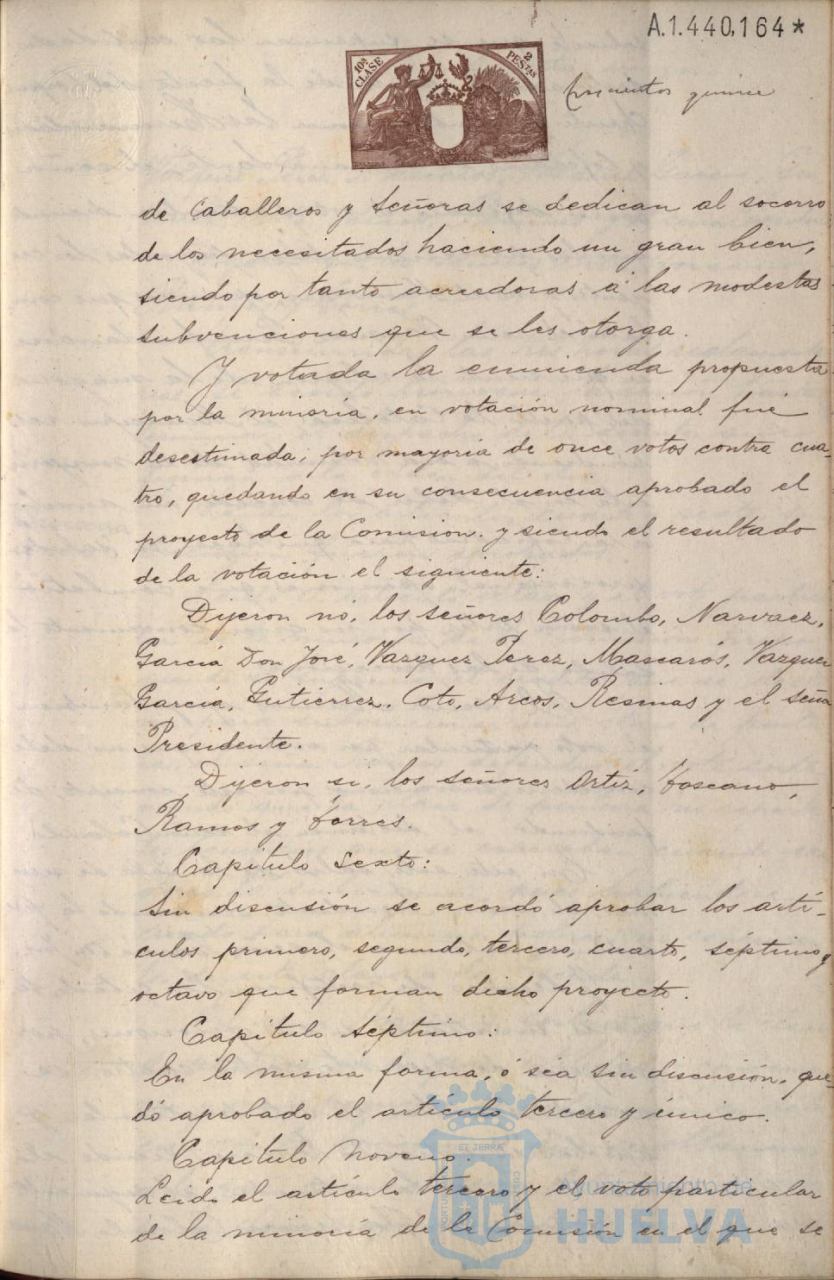 A.1.440,164*
10ª CLASE
2 PESTAS
quince
de Caballeros y Señoras se dedican al socorro
de los necesitados haciendo un gran bien,
siendo por tanto acreedoras á las modestas
subvenciones que se les otorga.
Y votada la enmienda propuesta
por la minoría, en votación nominal fué
desestimada, por mayoría de once votos contra cua-
tro, quedando en su consecuencia aprobado el
proyecto de la Comision. y siendo el resultado
de la votación el siguiente:
Dijeron nó, los señores Colombo, Narvaez,
García Don José, Vazquez Perez, Mascarós, Vazquez
García, Gutierrez, Coto, Arcos, Resinas y el señor
Presidente.
Dijeron si, los señores Ortiz, Toscano,
Ramos y Torres.
Capítulo Sexto:
Sin discusión se acordó aprobar los artí-
culos primero, segundo, tercero, cuarto, séptimo y
octavo que forman dicho proyecto.
Capítulo Séptimo:
En la misma forma, ó sea sin discusión, que-
dó aprobado el artículo tercero y único.
Capítulo Noveno.
Leido el artículo tercero y el voto particular
de la minoría de la Comisión en el que se
Ayuntamiento de
HUELVA